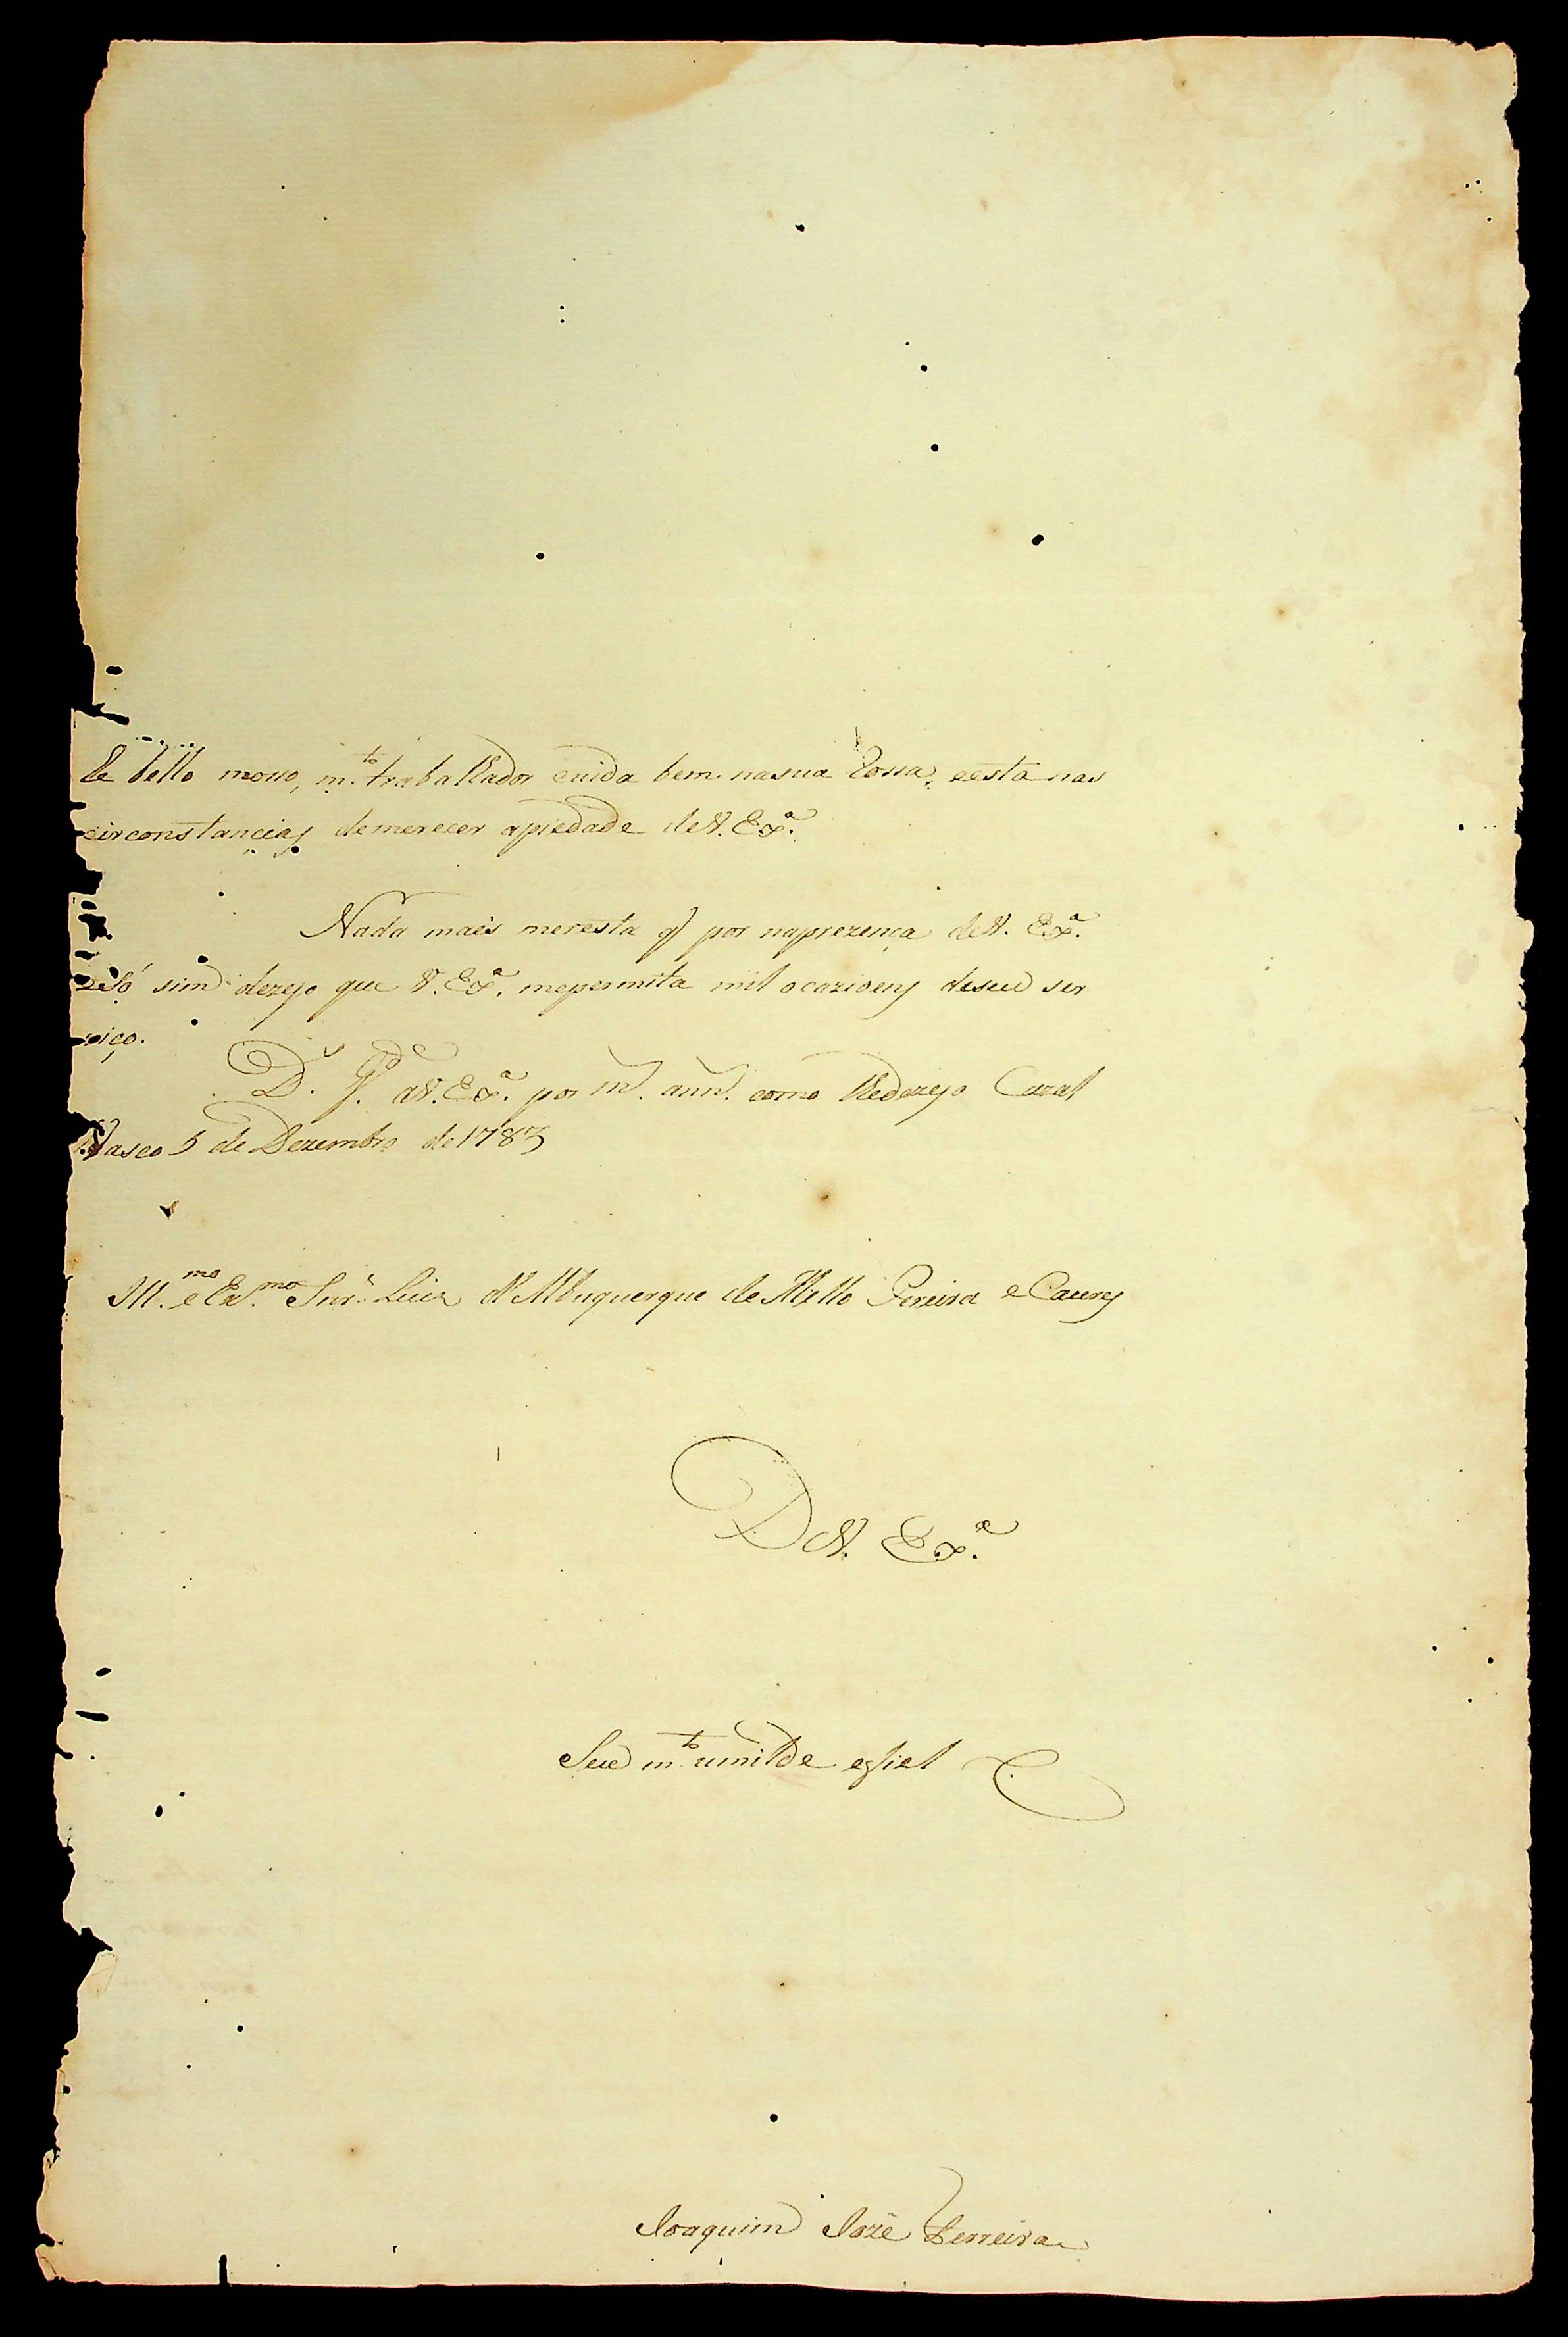 he bello mosso, m.to trabalhador cuida bem nasua Rossa, eesta nas
circonstancias demerecer apiedade deV. Ex.a
Nada mais meresta q por naprezença deV. Ex.a
e Só sim dezejo que V. Ex.a mepermita mil ocazioens deseu ser
viço.
D.s g.de aV. Ex.a por m.s ann.s como lhedezejo Cazal
Vasco 5 de Dezembro de 1783
Ill.mo e Ex.mo Snr. Luiz d'Albuquerque de Mello Pereira e Caceres
D V. Ex.a
Seu m.to umilde efiel C.
Joaquim Jozé Ferreira